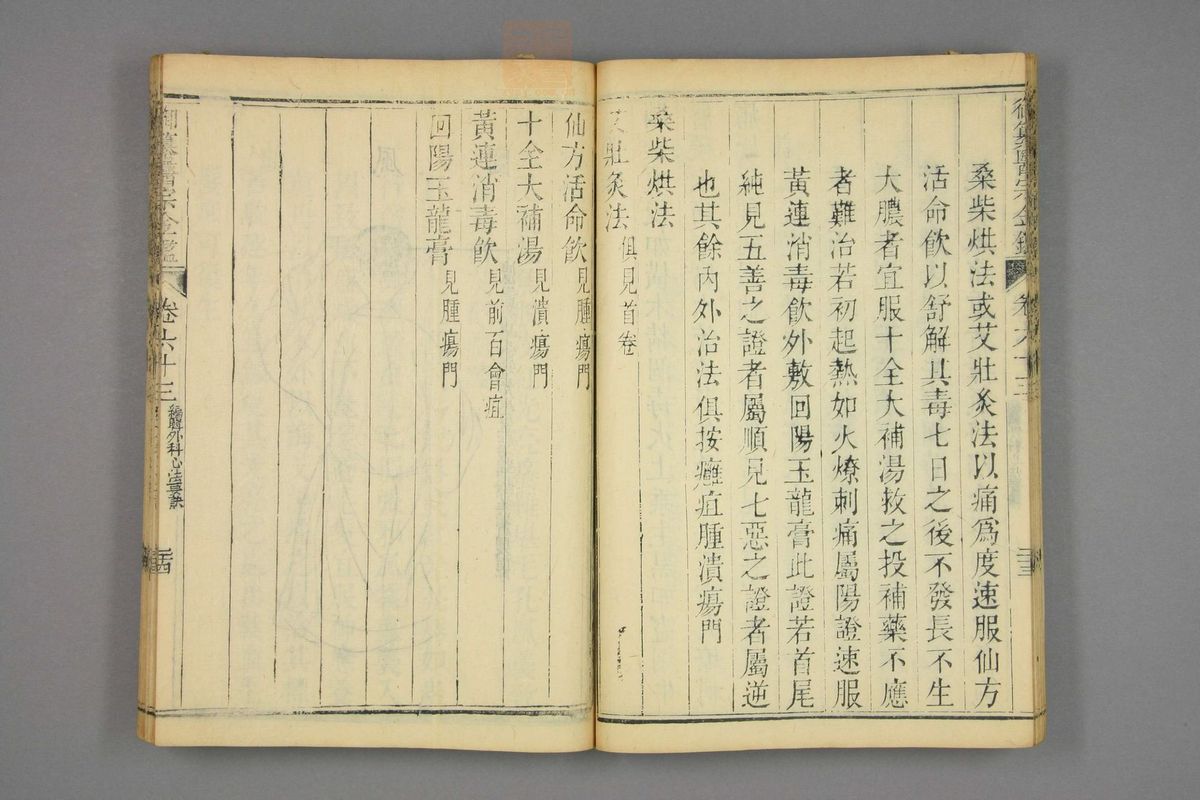 桑柴烘法或艾壯灸法以痛爲度速服仙方
活命飲以舒解其毒七日之後不發長不生
大膿者宜服十全大補湯救之投補藥不應
者難治若初起熱如火燎刺痛屬陽證速服
黃連消毒飲外敷回陽玉龍膏此證若首尾
純見五善之證者屬順見七惡之證者屬逆
也其餘內外治法俱按癰疽腫潰瘍門
桑柴烘法
艾壯灸法俱見首卷
仙方活命飲見腫瘍門
十全大補湯見潰瘍門
黃連消毒飲見前百會疽
回陽玉龍膏見腫瘍門
御纂醫宗金鑑 卷六十三 編輯外科心法要訣 二十四
御纂醫宗金鑑 卷六十三 二十三